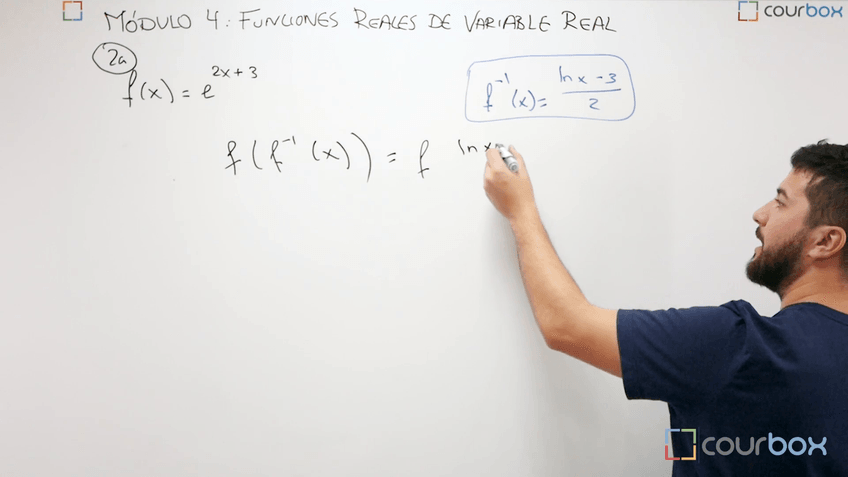 MÓDULO 4: FUNCIONES REALES DE VARIABLE REAL
courbox
2a
f(x) = e^{2x+3}
f^{-1}(x) = \frac{ln x - 3}{2}
f(f^{-1}(x)) = f ln x
courbox